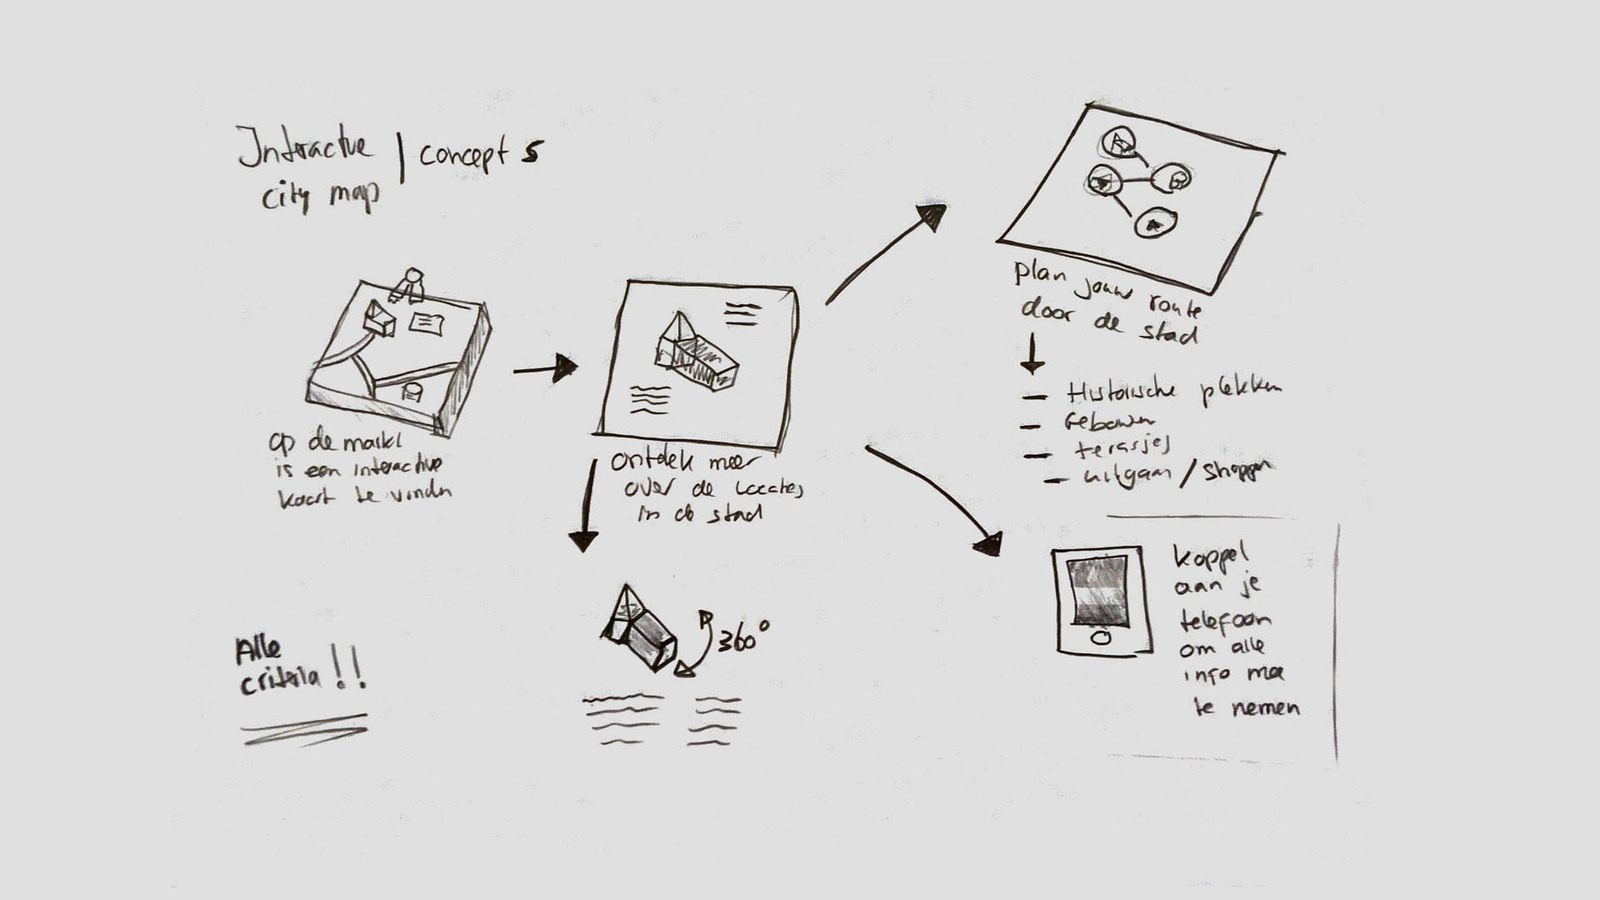 Interactive | concept 5
city map
op de markt
is een interactive
kaart te vinden
ontdek meer
over de locaties
in de stad
360°
plan jouw route
door de stad
– Historische plekken
– Gebouwen
– terasjes
– uitgaan / shoppen
koppel
aan je
telefoon
om alle
info mee
te nemen
Alle
criteria !!